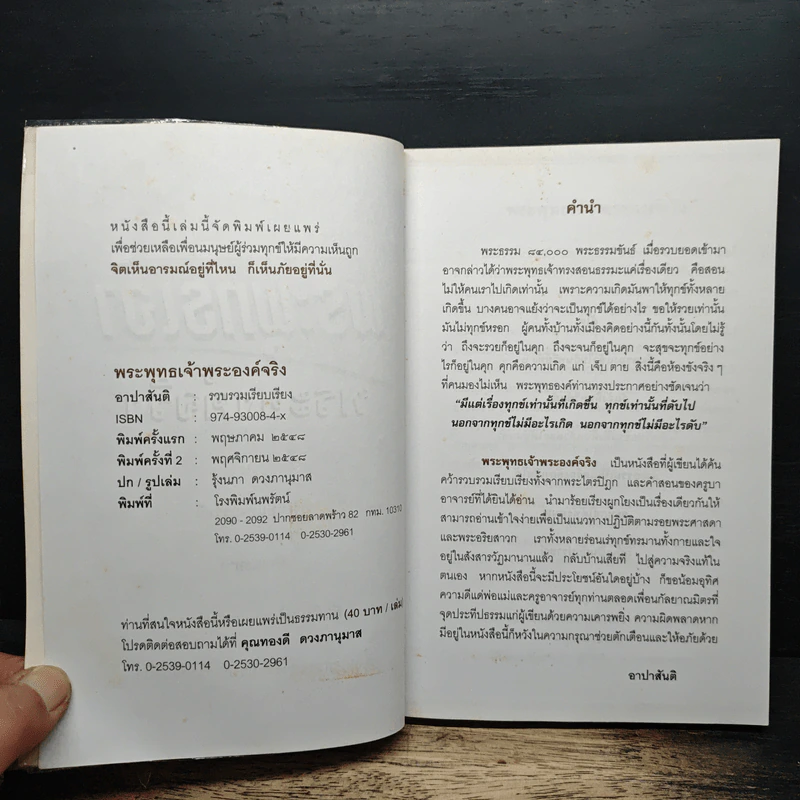 หนังสือนี้เล่มนี้จัดพิมพ์เผยแพร่
เพื่อช่วยเหลือเพื่อนมนุษย์ผู้ร่วมทุกข์ให้มีความเห็นถูก
จิตเห็นอารมณ์อยู่ที่ไหน ก็เห็นภัยอยู่ที่นั่น
พระพุทธเจ้าพระองค์จริง
อาปาสันติ : รวบรวมเรียบเรียง
ISBN : 974-93008-4-x
พิมพ์ครั้งแรก : พฤษภาคม ๒๕๔๘
พิมพ์ครั้งที่ 2 : พฤศจิกายน ๒๕๔๘
ปก / รูปเล่ม : รุ้งนภา ดวงภานุมาส
พิมพ์ที่ : โรงพิมพ์นพรัตน์
2090 - 2092 ปากซอยลาดพร้าว 82 กทม. 10310
โทร. 0-2539-0114 0-2530-2961
ท่านที่สนใจหนังสือนี้หรือเผยแพร่เป็นธรรมทาน (40 บาท / เล่ม)
โปรดติดต่อสอบถามได้ที่ คุณทองดี ดวงภานุมาส
โทร. 0-2539-0114 0-2530-2961
คำนำ
พระธรรม ๘๔,๐๐๐ พระธรรมขันธ์ เมื่อรวบยอดเข้ามา
อาจกล่าวได้ว่าพระพุทธเจ้าทรงสอนธรรมะแค่เรื่องเดียว คือสอน
ไม่ให้คนเราไปเกิดเท่านั้น เพราะความเกิดมันพาให้ทุกข์ทั้งหลาย
เกิดขึ้น บางคนอาจแย้งว่าจะเป็นทุกข์ได้อย่างไร ขอให้รวยเท่านั้น
มันไม่ทุกข์หรอก ผู้คนทั้งบ้านทั้งเมืองคิดอย่างนี้กันทั้งนั้นโดยไม่รู้
ว่า ถึงจะรวยก็อยู่ในคุก ถึงจะจนก็อยู่ในคุก จะสุขจะทุกข์อย่าง
ไรก็อยู่ในคุก คุกคือความเกิด แก่ เจ็บ ตาย สิ่งนี้คือห้องขังจริง ๆ
ที่คนมองไม่เห็น พระพุทธองค์ท่านทรงประกาศอย่างชัดเจนว่า
"มีแต่เรื่องทุกข์เท่านั้นที่เกิดขึ้น ทุกข์เท่านั้นที่ดับไป
นอกจากทุกข์ไม่มีอะไรเกิด นอกจากทุกข์ไม่มีอะไรดับ"
พระพุทธเจ้าพระองค์จริง เป็นหนังสือที่ผู้เขียนได้ค้น
คว้ารวบรวมเรียบเรียงทั้งจากพระไตรปิฎก และคำสอนของครูบา
อาจารย์ที่ได้ยินได้อ่าน นำมาร้อยเรียงผูกโยงเป็นเรื่องเดียวกันให้
สามารถอ่านเข้าใจง่ายเพื่อเป็นแนวทางปฏิบัติตามรอยพระศาสดา
และพระอริยสาวก เราทั้งหลายร่อนเร่ทุกข์ทรมานทั้งกายและใจ
อยู่ในสังสารวัฏมานานแล้ว กลับบ้านเสียที ไปสู่ความจริงแท้ใน
ตนเอง หากหนังสือนี้จะมีประโยชน์อันใดอยู่บ้าง ก็ขอน้อมอุทิศ
ความดีแด่พ่อแม่และครูอาจารย์ทุกท่านตลอดเพื่อนกัลยาณมิตรที่
จุดประทีปธรรมแก่ผู้เขียนด้วยความเคารพยิ่ง ความผิดพลาดหาก
มีอยู่ในหนังสือนี้ก็หวังในความกรุณาช่วยตักเตือนและให้อภัยด้วย
อาปาสันติ